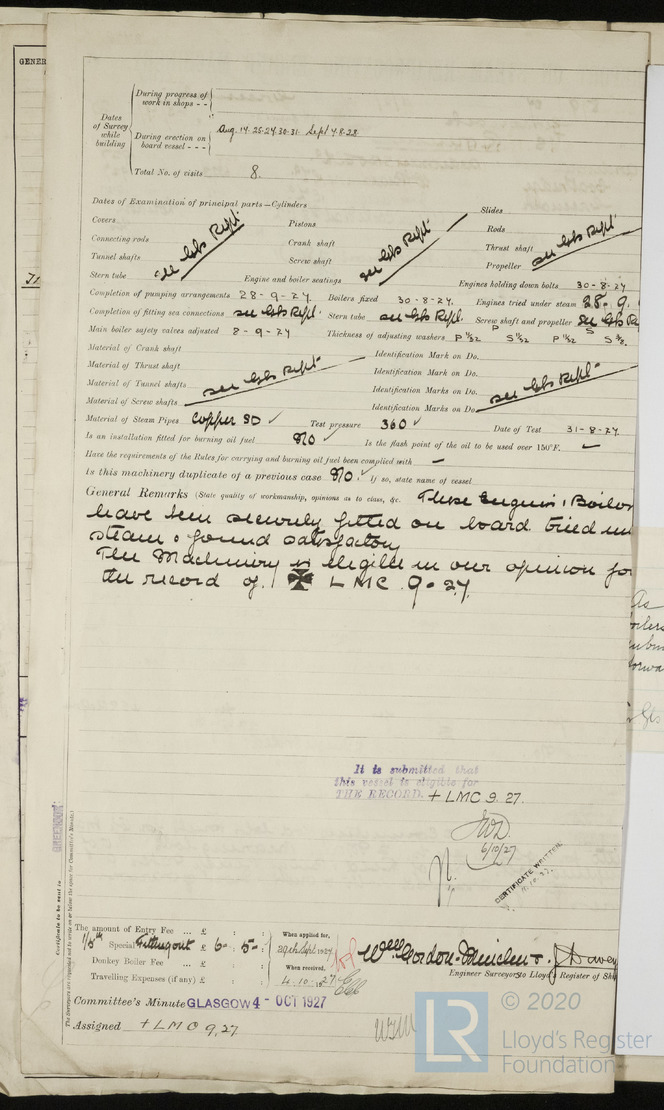 GENER
Dates of Survey while building
During progress of work in shops - -
During erection on board vessel - - -
Aug. 14. 25. 27. 30. 31. Sept 7. 8. 28.
Total No. of visits 8.
Dates of Examination of principal parts—Cylinders Slides
Covers Pistons Rods
Connecting rods Crank shaft Thrust shaft
Tunnel shafts Screw shaft Propeller
see Gls Rept. see Gls Rept. see Gls Rept.
Stern tube Engine and boiler seatings Engines holding down bolts 30-8-27
Completion of pumping arrangements 28-9-27. Boilers fixed 30-8-27. Engines tried under steam 28.9.
Completion of fitting sea connections see Gls Rept. Stern tube see Gls Rept. Screw shaft and propeller see Gls Re
Main boiler safety valves adjusted 8-9-27 Thickness of adjusting washers P 11/32 S 11/32 P 11/32 S 3/8.
Material of Crank shaft Identification Mark on Do.
Material of Thrust shaft Identification Mark on Do.
Material of Tunnel shafts Identification Marks on Do.
Material of Screw shafts Identification Marks on Do.
see Gls Rept. see Gls Rept.
Material of Steam Pipes Copper SD ✓ Test pressure 360 ✓ Date of Test 31-8-27.
Is an installation fitted for burning oil fuel No ✓ Is the flash point of the oil to be used over 150°F. ✓
Have the requirements of the Rules for carrying and burning oil fuel been complied with —
Is this machinery duplicate of a previous case No. ✓ If so, state name of vessel
General Remarks (State quality of workmanship, opinions as to class, &c. These Engines & Boilers
have been securely fitted on board tried un
steam & found satisfactory
The Machinery is eligible in our opinion for
the record of. ✠ LMC. 9-27.
It is submitted that
this vessel is eligible for
THE RECORD. + LMC 9. 27.
6/10/27
CERTIFICATE WRITTEN
GREENOCK
Certificate to be sent to
(The Surveyors are requested not to write on or below the space for Committee's Minute.)
The amount of Entry Fee ... £ : : When applied for,
1/5th Special Fitting out £ 6 : 5 : 29th Sept 1927
Donkey Boiler Fee ... £ : : When received,
Travelling Expenses (if any) £ : : 4.10.1927
Wm Gordon-
Engineer Surveyors to Lloyd's Register of Sh
Committee's Minute GLASGOW 4 - OCT 1927
Assigned + LMC 9,27
LR
© 2020
Lloyd's Register
Foundation